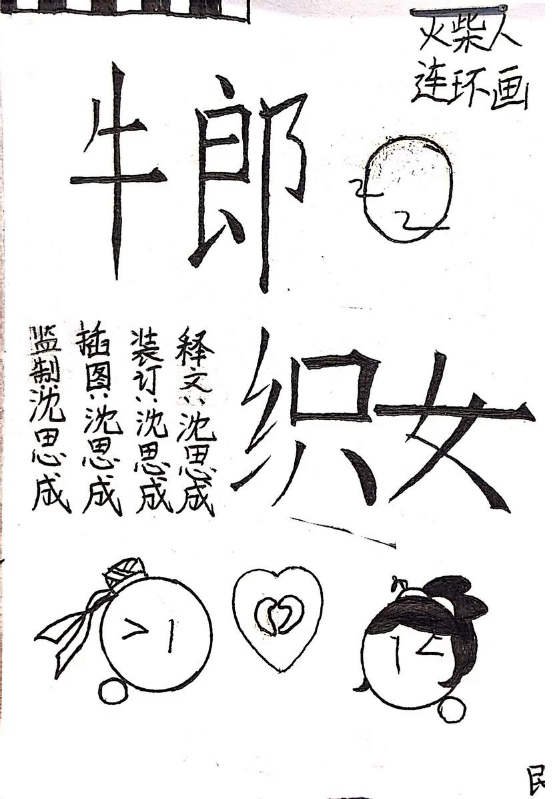 火柴人
连环画
牛郎
织女
释文:沈思成
装订:沈思成
插图:沈思成
监制沈思成
民